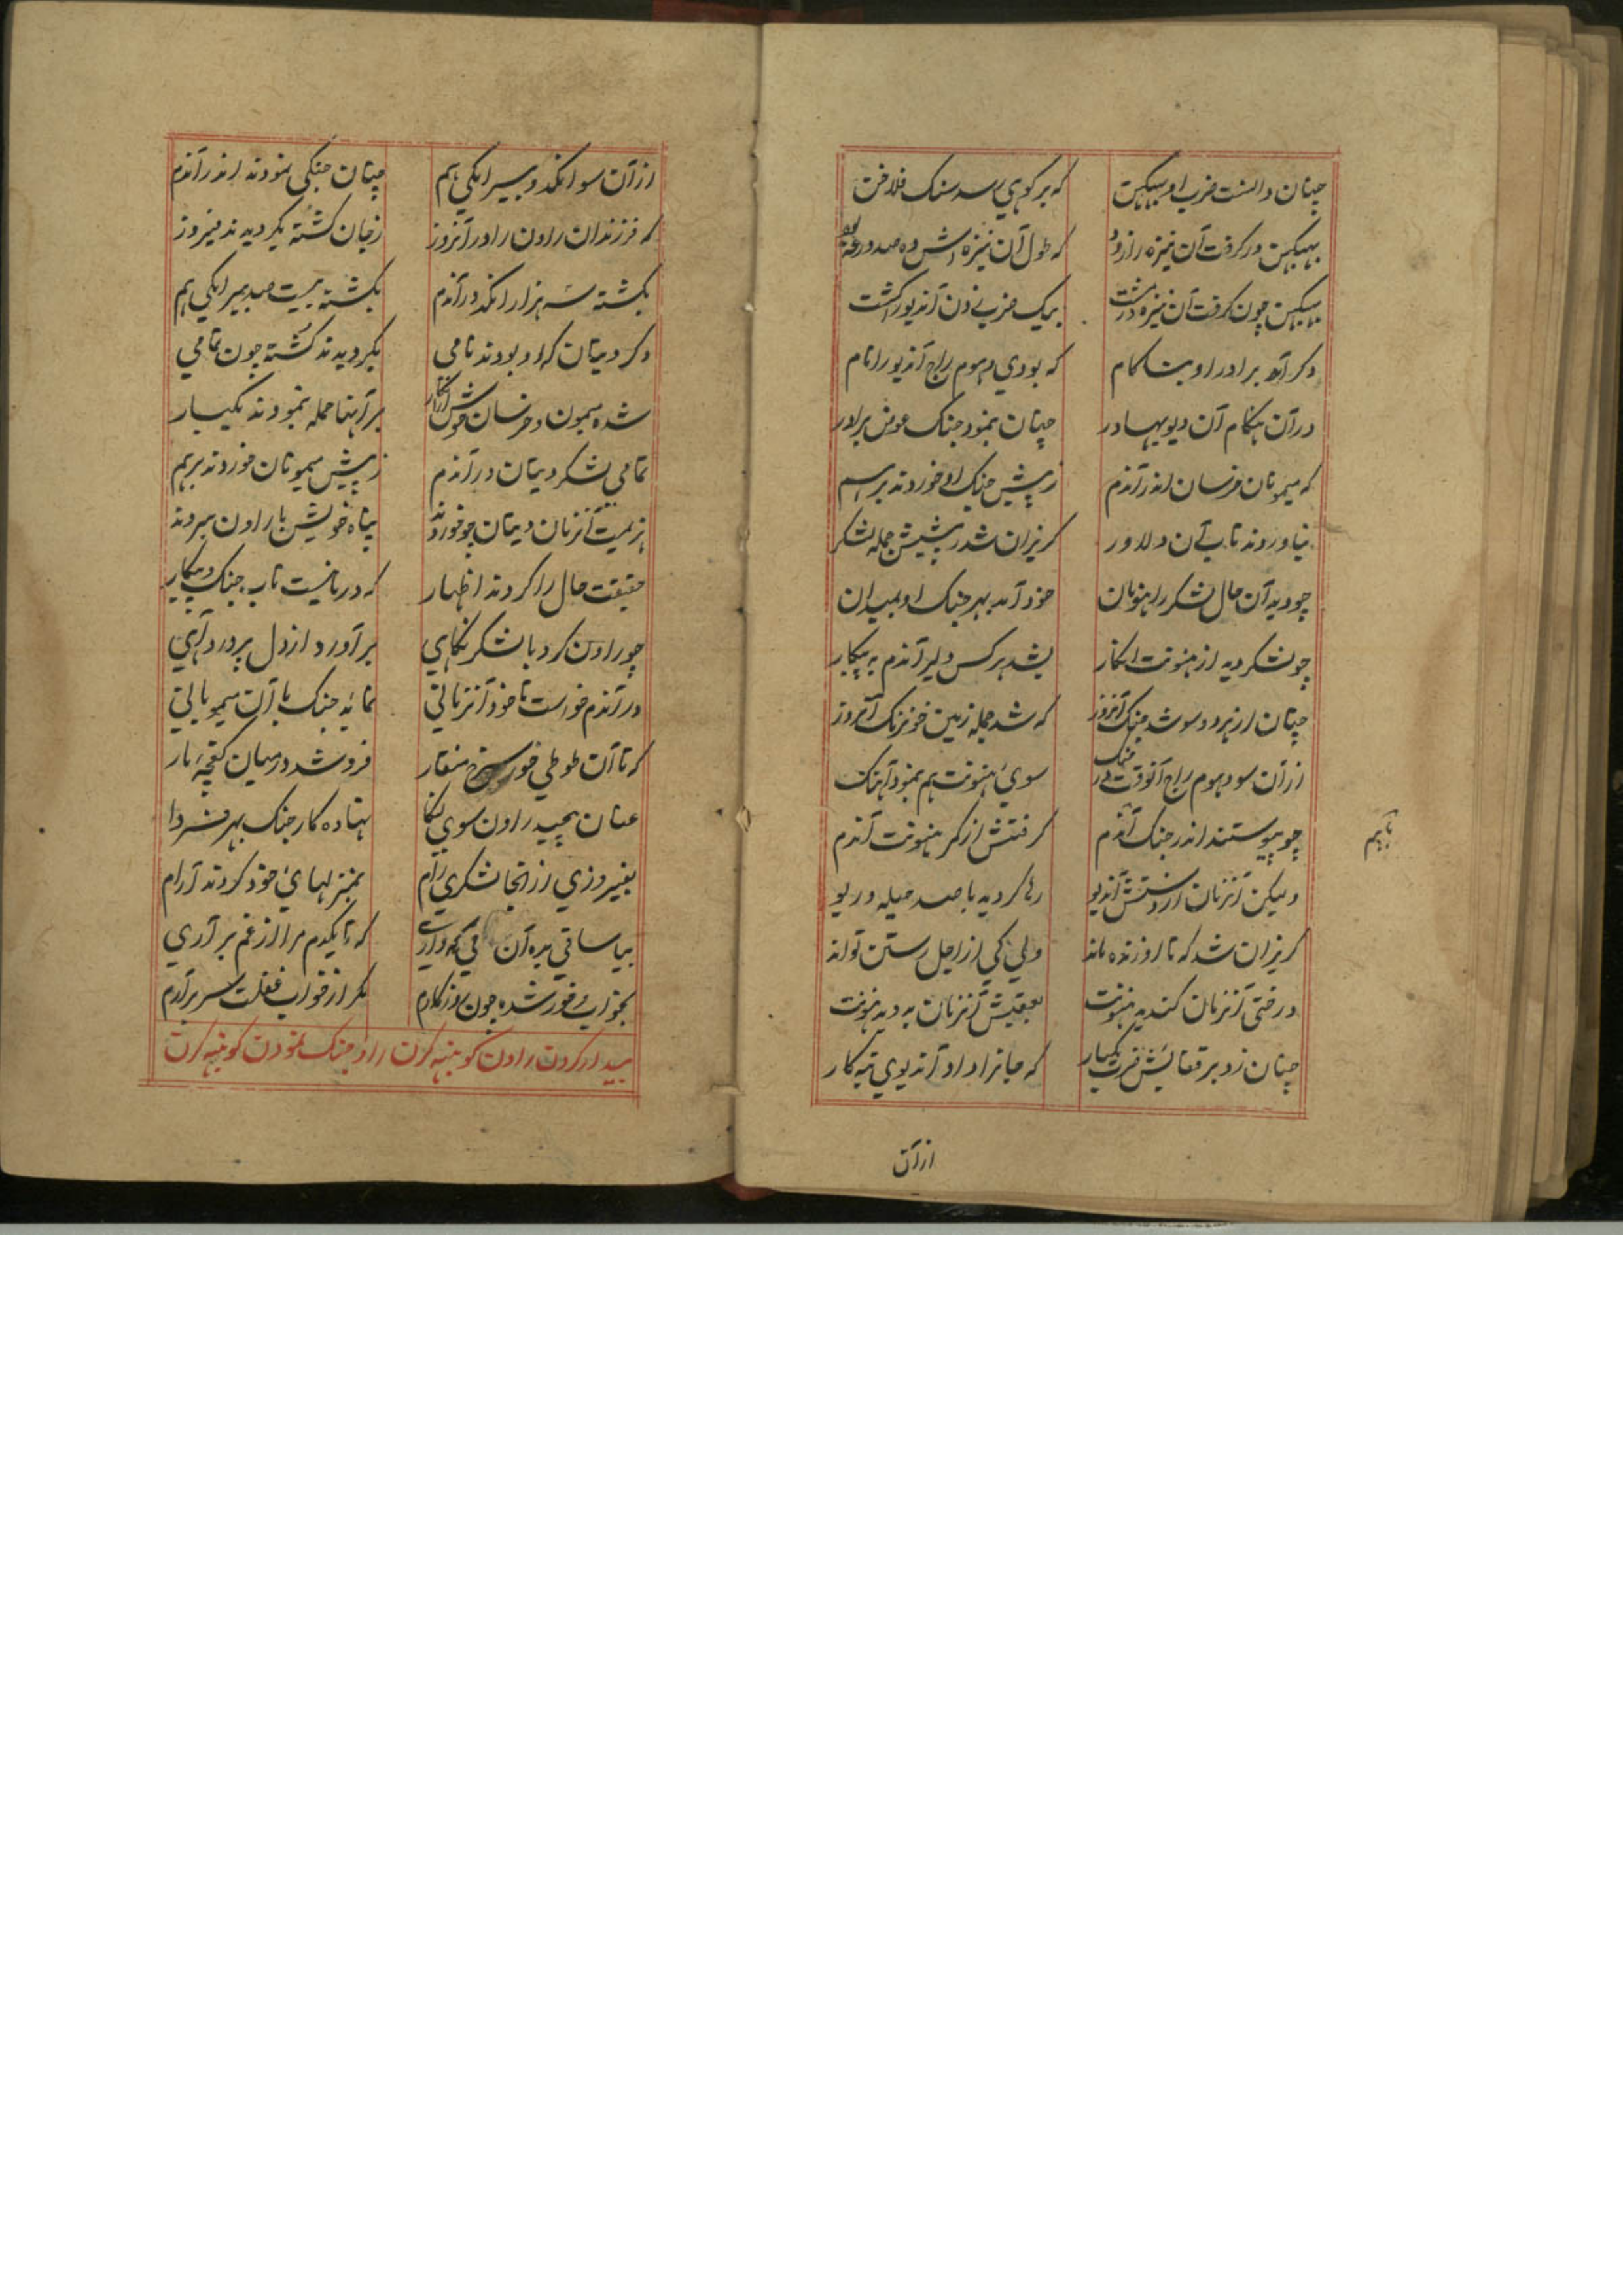 چنان دانست ضرب او بهبیکهن که بر کوهی رسد سنک فلاخن
بهبیکهن در کرفت آن نیزه را زود که طول آن نیزه اش ده صد درعه بود
بهبیکهن چون کرفت آن نیزه در مشت بیک ضربی زدن آندیو را کشت
دکر آمد برادر او بناکام که بودی دهوم راج آندیو را نام
در آن هنکام آن دیو بهادر چنان بنمود جنک عوض برادر
که میمونان خرسان اندر آندم ز پیش جنک او خوردند برهم
نیاوردند تاب آن دلاور کریزان شد ز پیشش جمله لشکر
چو دید آن حال لشکر را هنونان خود آمد بهر جنک او بمیدان
چو لشکر دید از هنونت این کار بشد هر کس دلیر آندم به پیکار
چنان از هر دو سو شد جنک آنروز که شد جمله زمین خونرنک آنروز
از آن سو دهوم راج آنوقت در جنک سوی هنونت هم بنمود آهنک
چو پیوستند اندر جنک آندم کرفتش از کمر هنونت آندم
باهم
ولیکن آنزمان از دستش آندیو رها کردید با صد حیله و ریو
کریزان شد که تا او زنده ماند ولی کی از اجل رستن تواند
درختی آنزمان کندید هنونت بعقبش آنزمان بدوید هنونت
چنان زد بر قفایش ضرب یکبار که جانرا داد آندیوی تبه کار
از آن
از آن سو انکد و بیر انکی هم چنان جنکی نمودند اندر آندم
که فرزندان راون را در آنروز ز جان کشته بکردیدند فیروز
بکشته سه هزار انکد در آندم بکشته بیست صد بیر انکی هم
دکر دیتان که او بودند نامی بکردیدند کشته چون تمامی
شده میمون و خرسان خوش از انکار بر آنها حمله بنمودند یکبار
تمامی لشکر دیتان در آندم ز پیش میمونان خوردند برهم
هزیمت آنزمان دیتان چو خوردند پناه خویش با راون ببردند
حقیقت حال را کردند اظهار که در ما نیست تاب جنک و پیکار
چو راون کرد با لشکر نکاهی بر آورد از دل پر درد آهی
در آندم خواست تا خود آنزمانی نماید جنک با آن میمونانی
که تا آن طوطی خور سرخ منقار فرو شد در میان کفچه مار
عنان پیچید راون سوی لنکا نهاده کار جنک بهر فردا
بفیروزی از آنجا لشکری رام بمنزلهای خود کردند آرام
بیا ساقی بده آن می که داری که تا یکدم مرا از غم بر آری
بخواب خور شده چون روزکارم مکر از خواب غفلت سر برآرم
بیدار کردن راون کوهنبهه کرن را و جنک نمودن کوهنبهه کرن